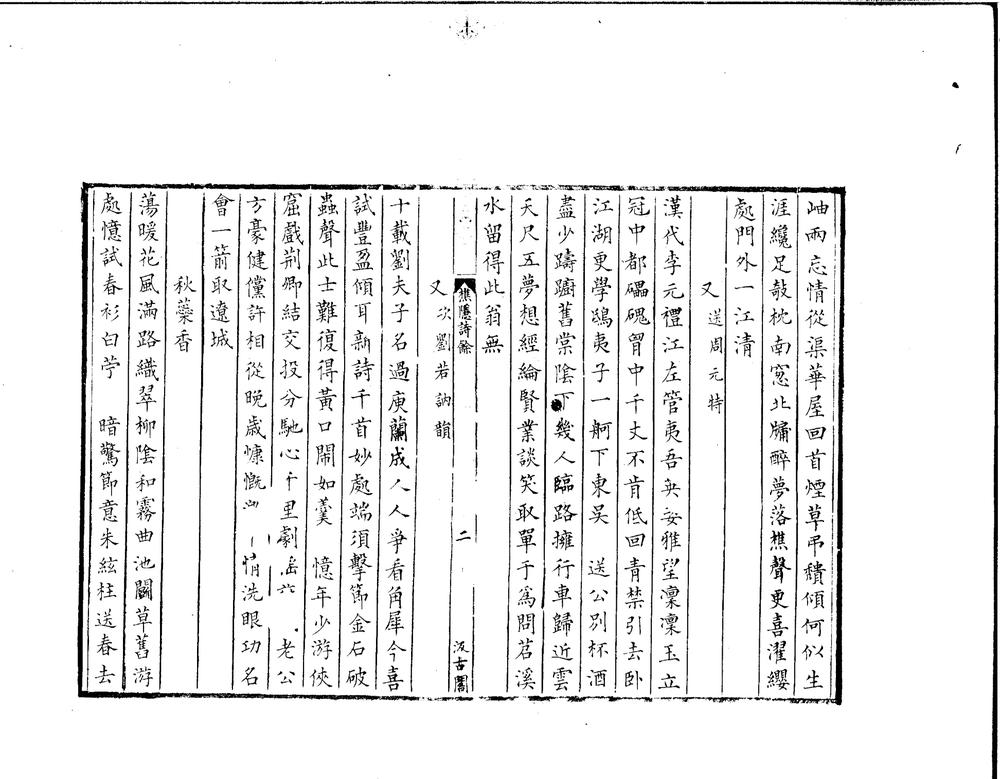 岫雨忘情從渠華屋回首煙草弔積傾何似生
涯纔足攲枕南窓北牖醉夢落樵聲更喜濯纓
處門外一江清
又 送周元特
漢代李元禮江左管夷吾英姿雅望凜凜玉立
冠中都礧磈胷中千丈不肯低回青禁引去卧
江湖更學鴟夷子一舸下東吳 送公別杯酒
盡少躊躕舊棠陰下幾人臨路擁行車歸近雲
天尺五夢想經綸賢業談笑取單于爲問苕溪
水留得此翁無
樵隱詩餘
二
汲古閣
又 次劉若訥韻
十載劉夫子名過庾蘭成人人爭看角犀今喜
試豐盈傾耳新詩千首妙處端須擊節金石破
蟲聲此士難復得黃口鬧如羹 憶年少游俠
窟戲荆卿結交投分馳心千里劇 老公
方豪健儻許相從晚歲慷慨 情洗眼功名
會一箭取遼城
秋蘂香
蕩暖花風滿路織翠柳陰和霧曲池鬭草舊游
處憶試春衫白苧 暗驚節意朱絃柱送春去